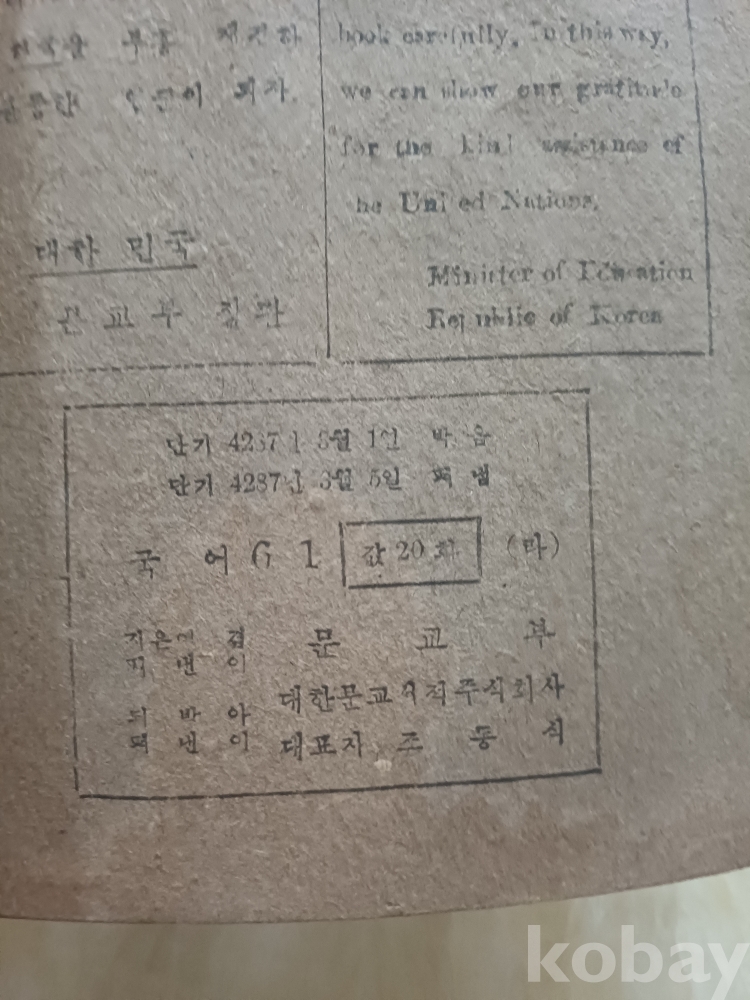 부흥
book carefully. In this way,
we can show our gratitude
for the kind assistance of
he United Nations.
대한 민국
문 교 부 장 관
Minister of Education
Republic of Korea
단기 4287년 3월 1일 박 음
단기 4287년 3월 5일 펴 냄
국 어 6 1 값 20 환 (마)
지은이 겸 문 교 부
펴 낸 이
되 박 아 대한문교서적주식회사
펴 낸 이 대표자 조 동 식
kobay